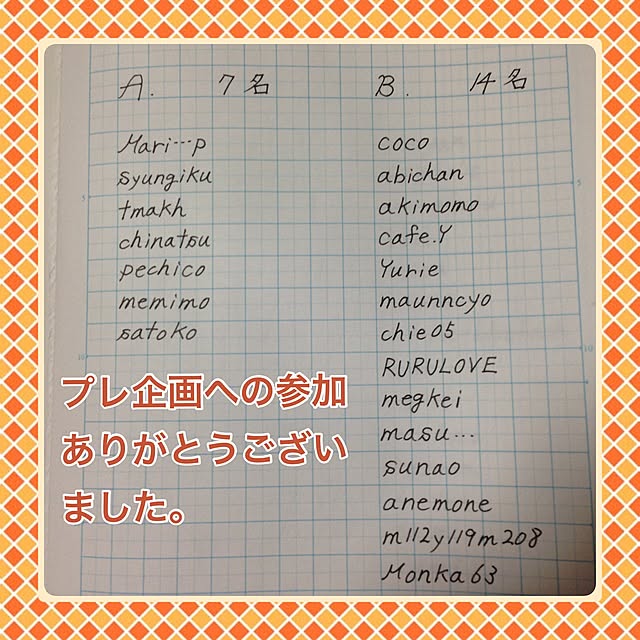 A. 7名
Mari…p
syungiku
tmakh
chinatsu
pechico
memimo
satoko
B. 14名
coco
abichan
akimomo
cafe.Y
Yurie
maunncyo
chie05
RURULOVE
megkei
masu…
sunao
anemone
m112y119m208
Monka63
プレ企画への参加
ありがとうござい
ました。